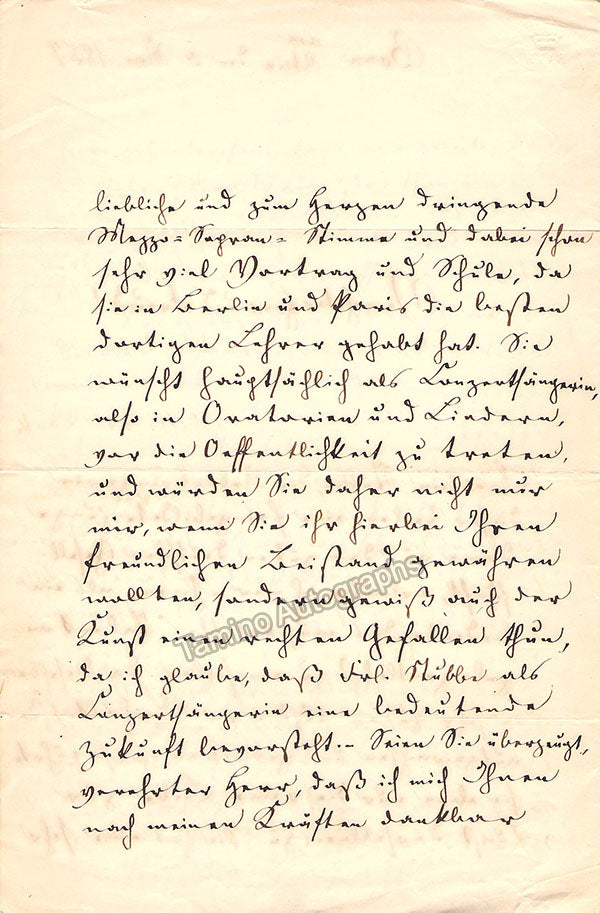 liebliche und zum Herzen dringende
Mezzo=Sopran=Stimme und dabei schon
sehr viel Vortrag und Schule, da
sie in Berlin und Paris die besten
dortigen Lehrer gehabt hat. Sie
wünscht hauptsächlich als Conzertsängerin,
also in Oratorien und Liedern,
vor die Oeffentlichkeit zu treten,
und würden Sie daher nicht nur
mir, wenn Sie ihr hierbei Ihren
freundlichen Beistand gewähren
wollten, sondern gewiß auch der
Kunst einen rechten Gefallen thun,
da ich glaube, daß Frl. Stubbe als
Conzertsängerin eine bedeutende
Zukunft bevorsteht.– Seien Sie überzeugt,
verehrter Herr, daß ich mich Ihnen
nach meinen Kräften dankbar
Tamino Autographs